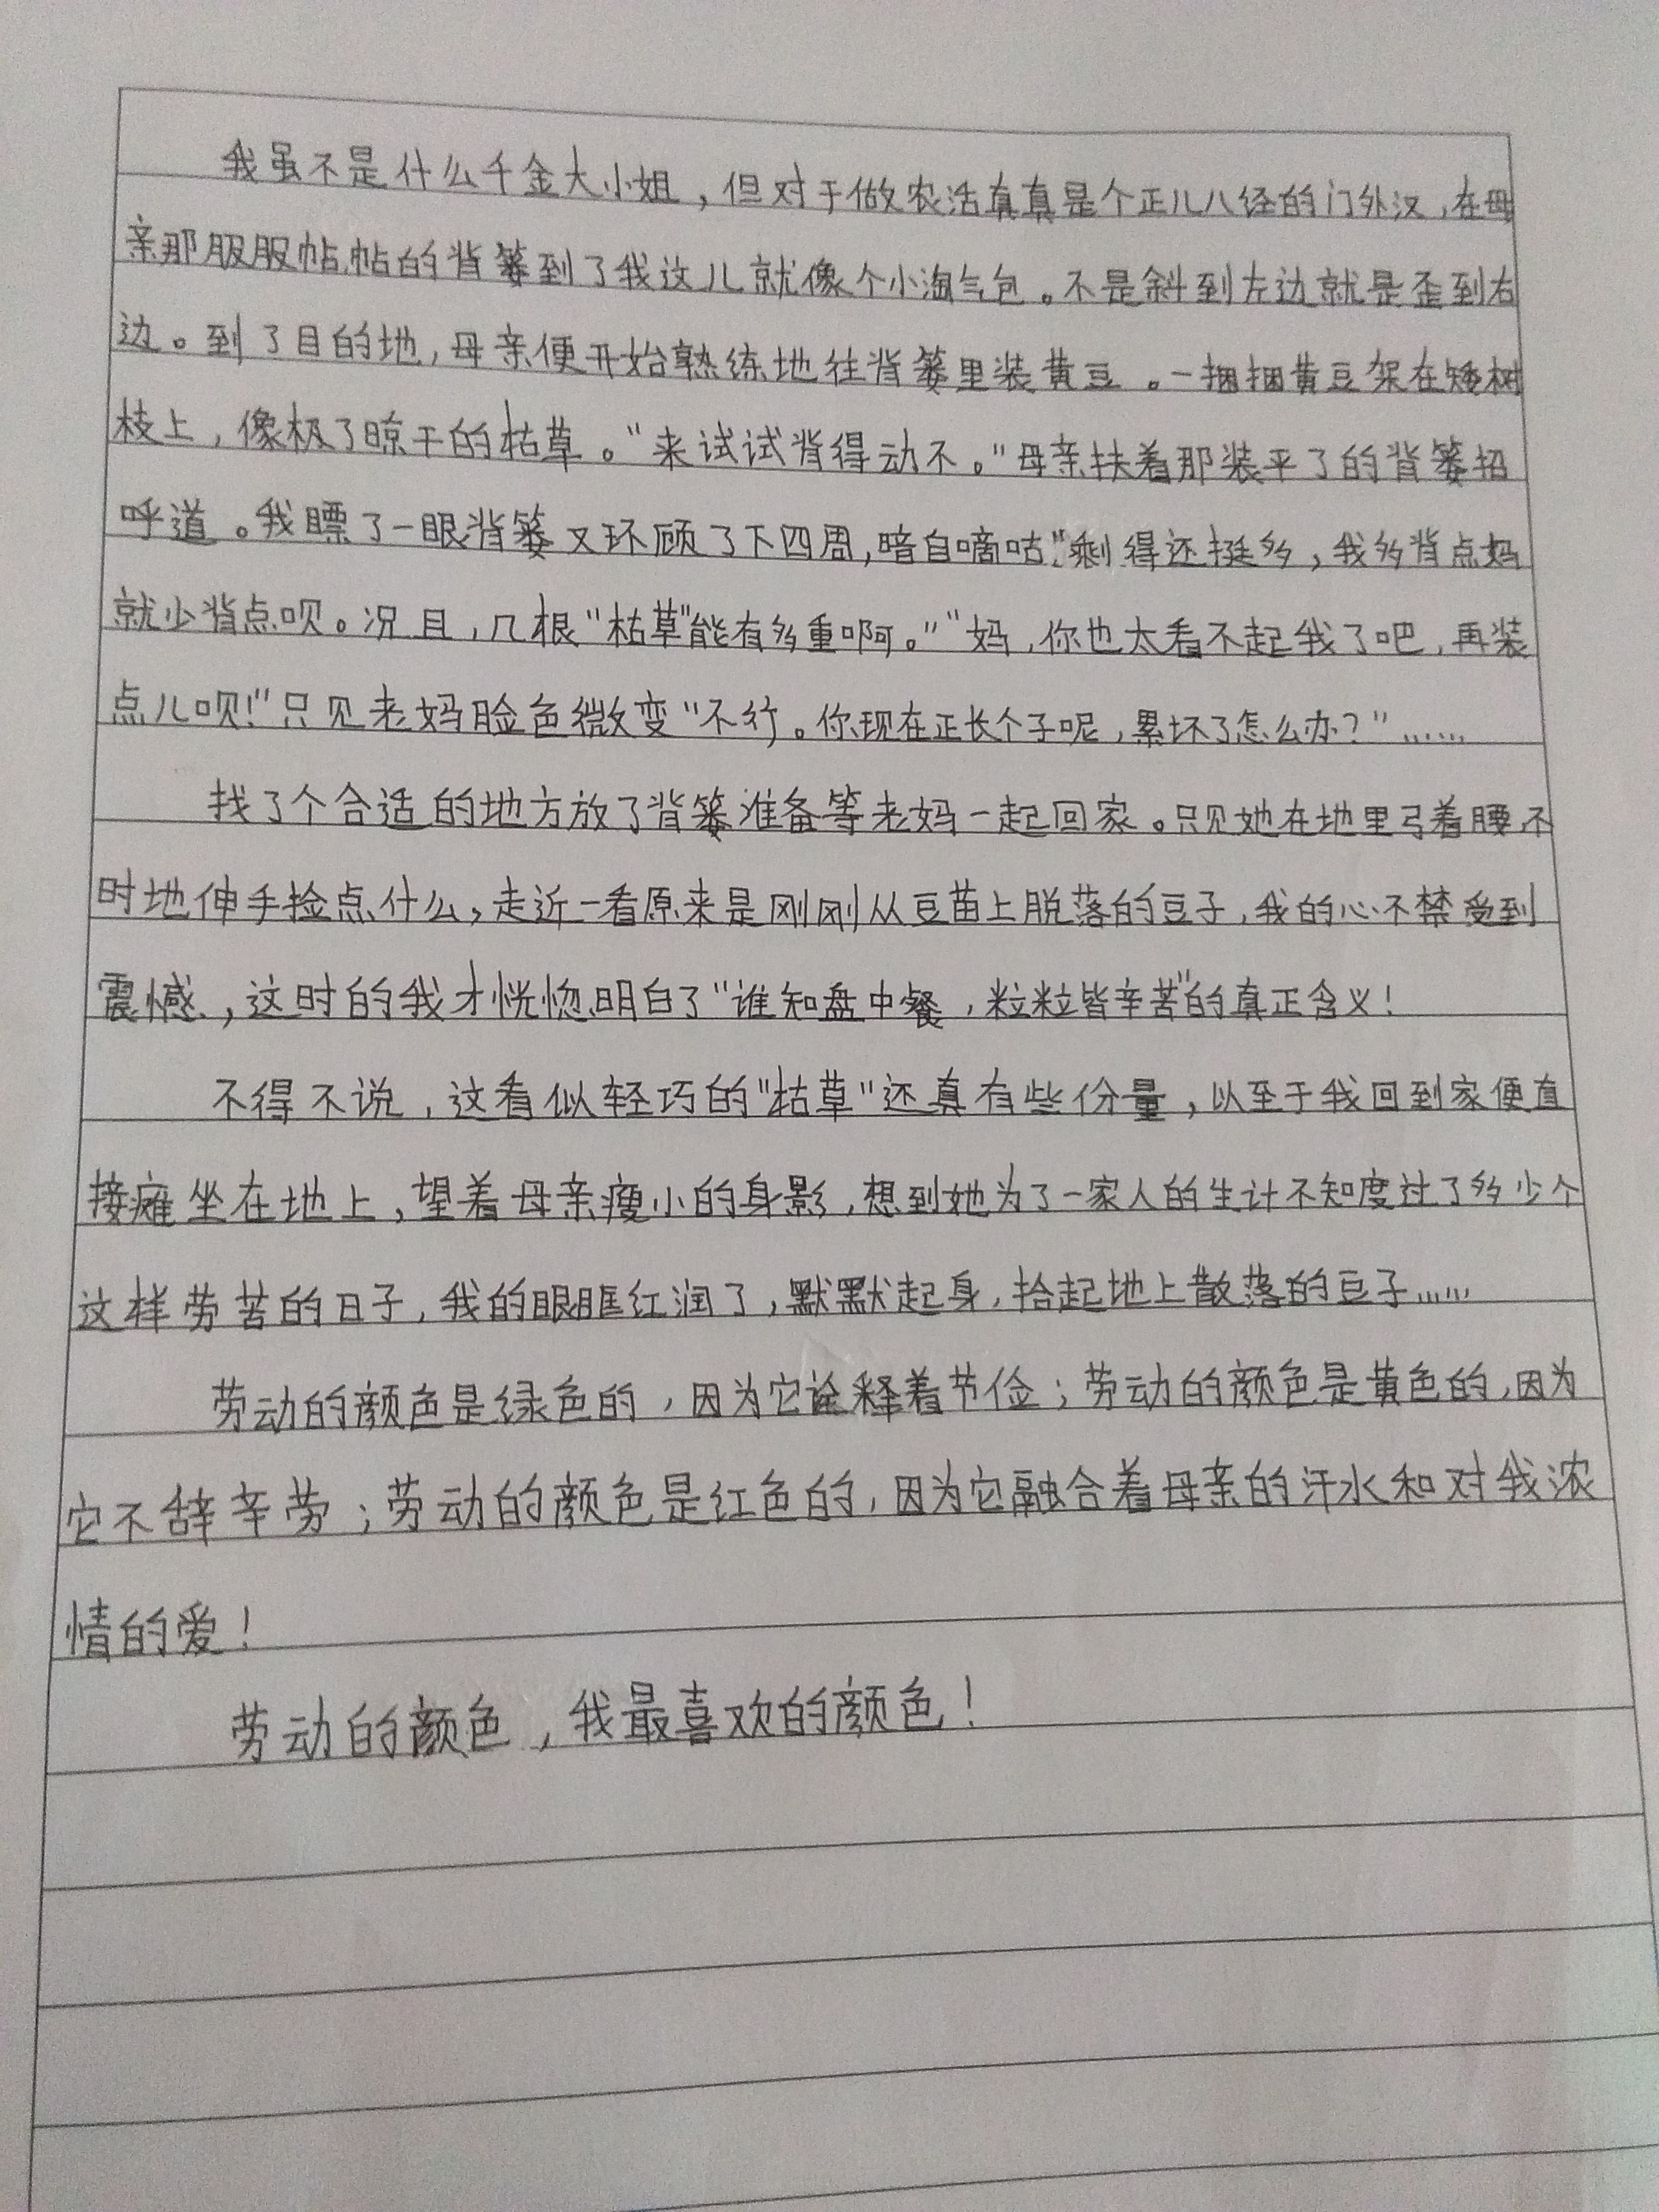 我虽不是什么千金大小姐，但对于做农活真真是个正儿八经的门外汉，在母
亲那服服帖帖的背篓到了我这儿就像个小淘气包。不是斜到左边就是歪到右
边。到了目的地，母亲便开始熟练地往背篓里装黄豆。一捆捆黄豆架在矮树
枝上，像极了晾干的枯草。“来试试背得动不。”母亲扶着那装平了的背篓招
呼道。我瞟了一眼背篓又环顾了下四周，暗自嘀咕：“剩得还挺多，我多背点妈
就少背点呗。况且，几根“枯草”能有多重啊。”“妈，你也太看不起我了吧，再装
点儿呗！”只见老妈脸色微变“不行。你现在正长个子呢，累坏了怎么办？”……
找了个合适的地方放了背篓准备等老妈一起回家。只见她在地里弓着腰不
时地伸手捡点什么，走近一看原来是刚刚从豆苗上脱落的豆子，我的心不禁受到
震憾，这时的我才恍惚明白了“谁知盘中餐，粒粒皆辛苦”的真正含义！
不得不说，这看似轻巧的“枯草”还真有些份量，以至于我回到家便直
接瘫坐在地上，望着母亲瘦小的身影，想到她为了一家人的生计不知度过了多少个
这样劳苦的日子，我的眼眶红润了，默默起身，拾起地上散落的豆子……
劳动的颜色是绿色的，因为它诠释着节俭；劳动的颜色是黄色的，因为
它不辞辛劳；劳动的颜色是红色的，因为它融合着母亲的汗水和对我浓
情的爱！
劳动的颜色，我最喜欢的颜色！